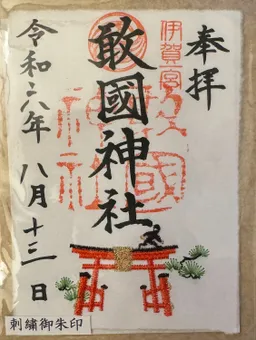 奉拝
伊賀一宮
敢國神社
令和六年八月十三日
刺繍御朱印